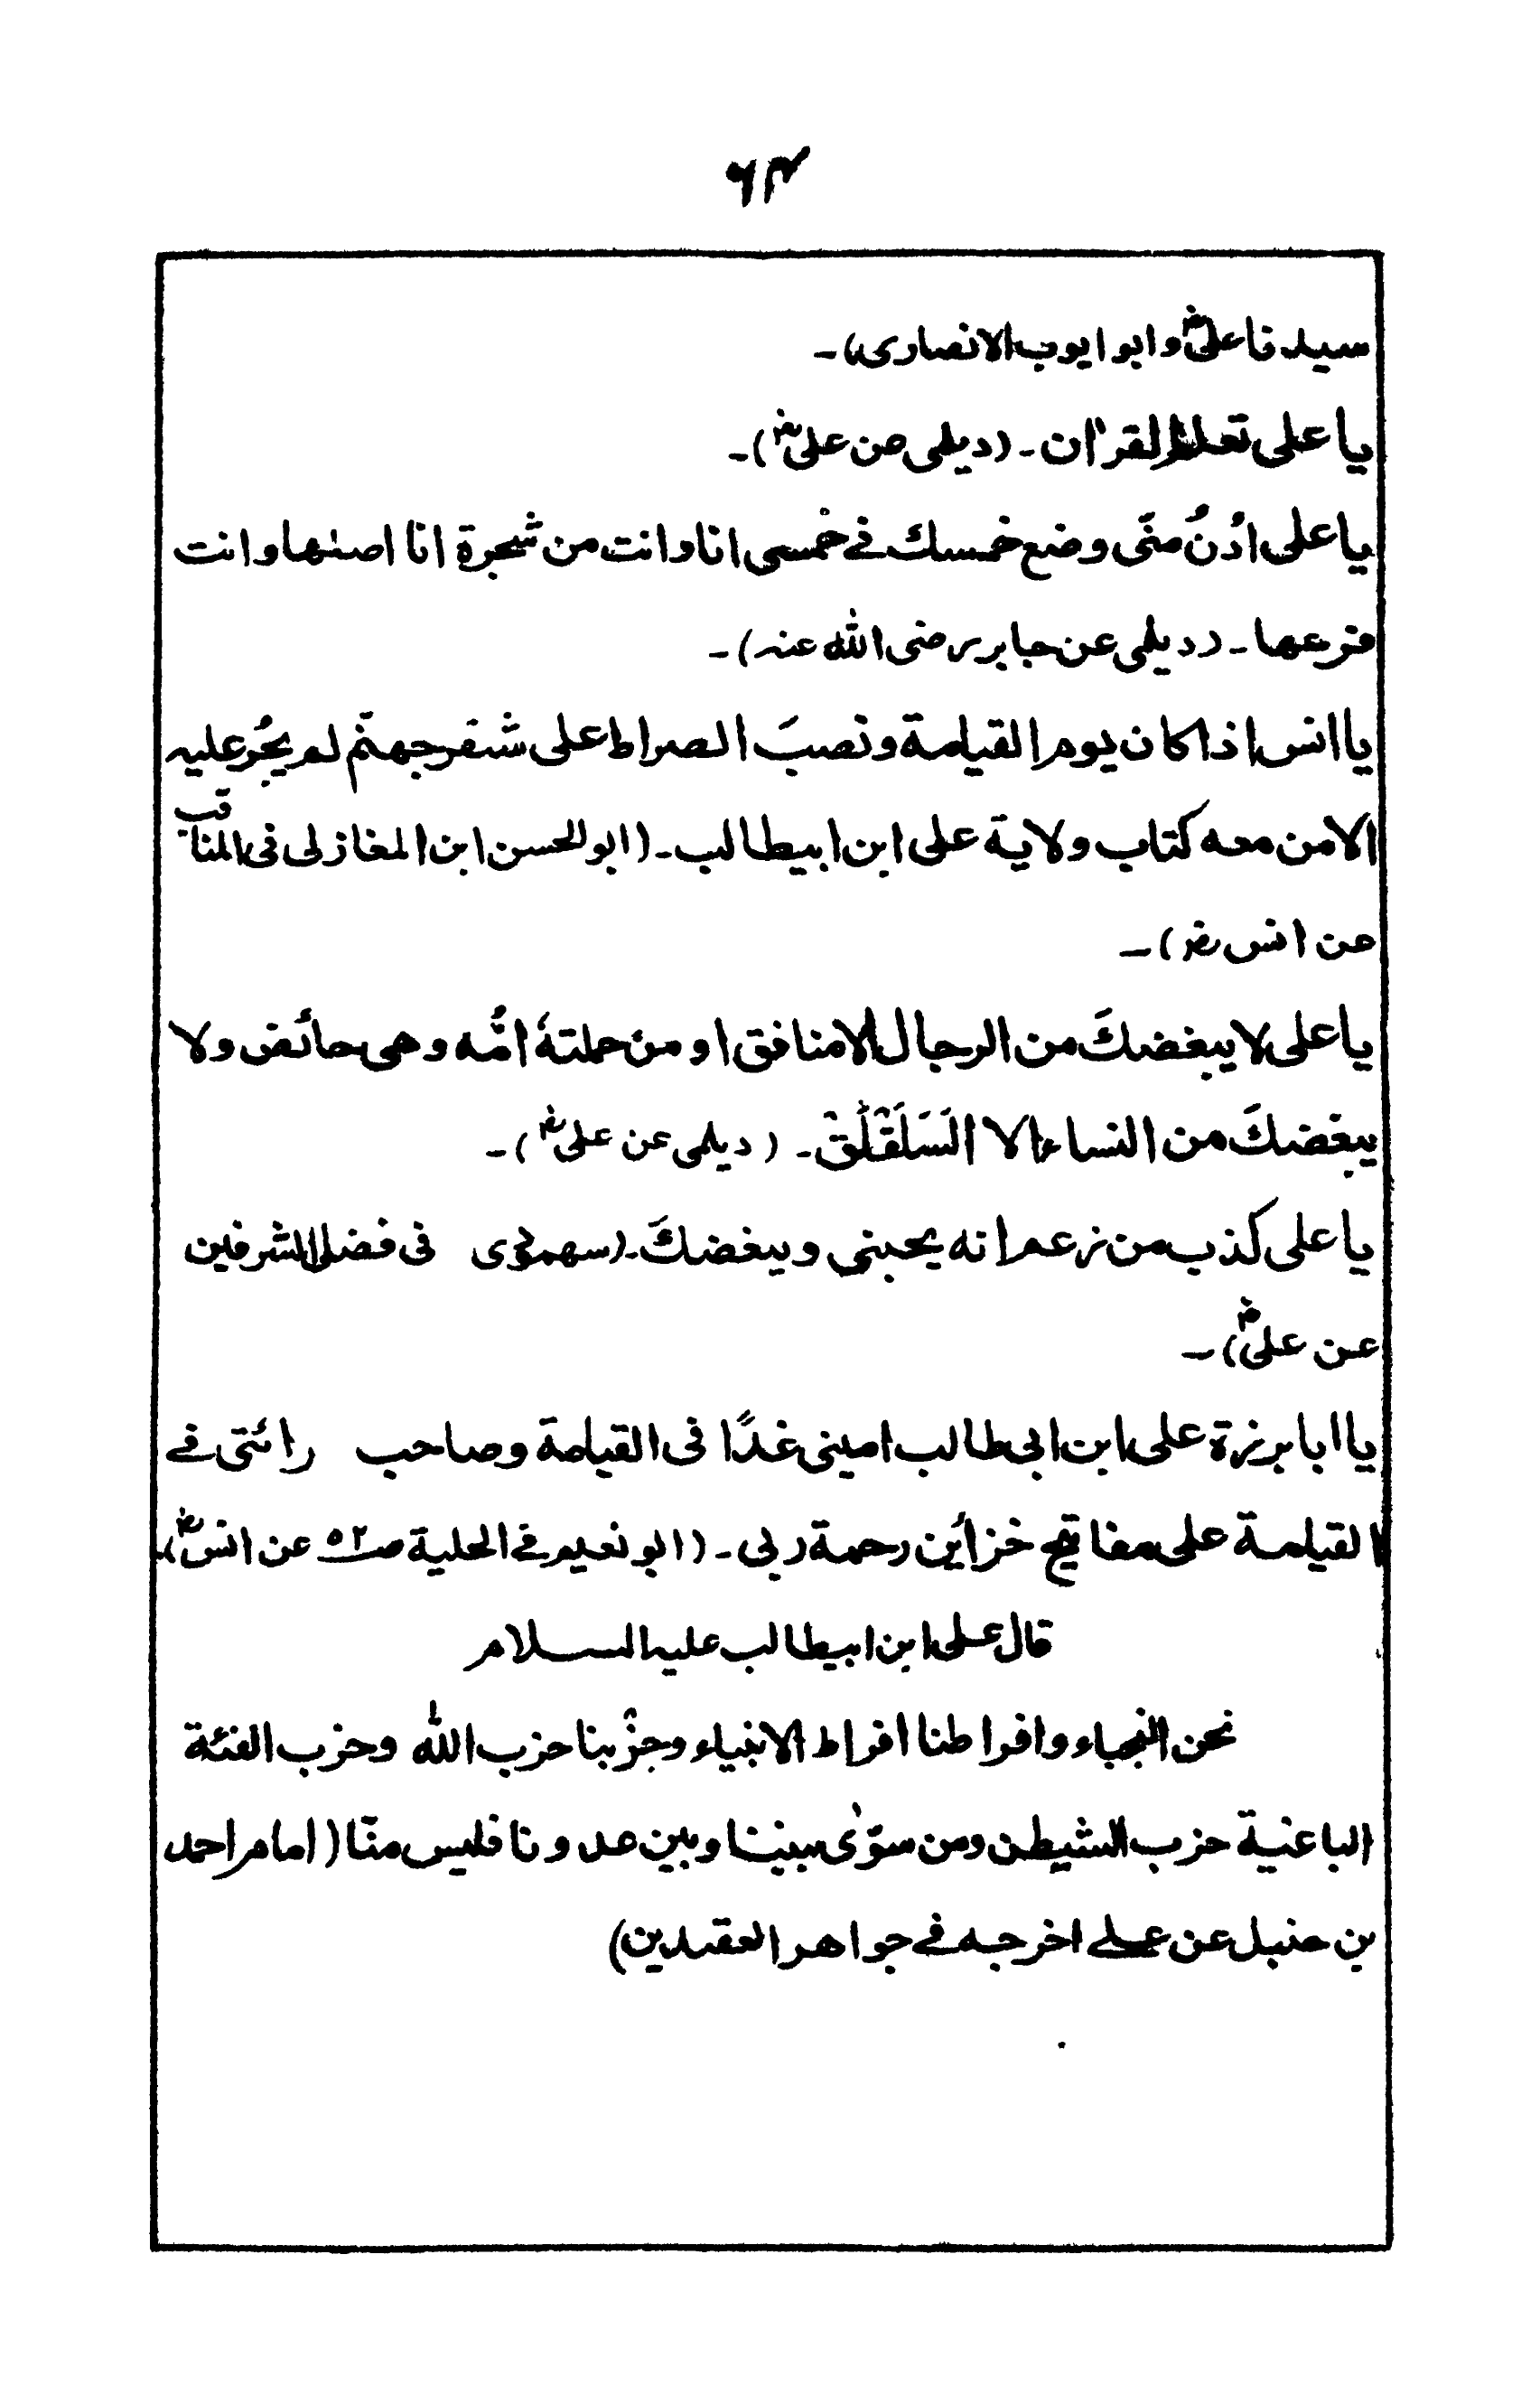 ۶۴
سیدنا علیؓ و ابو ایوب الانصاری)۔
یا علی تعلم القراٰن۔ (دیلمی عن علیؓ)۔
یا علی ادُنُ منّی وضع خمسك فے خمسی انا وانت من شجرة انا اصلها وانت
فرعها۔ (دیلمی عن جابر رضی اللّٰه عنه)۔
یا انس اذا كان یوم القیامة ونصبَ الصراط علی شفر جهنّم لم یجُز علیه
الا من معه كتاب ولایة علی ابن ابیطالب۔ (ابو الحسن ابن المغازلی فی المناقب
عن انس رض)۔
یا علی لا یبغضكَ من الرجال الا منافق او من حملتهٗ امُّه وهی حائض ولا
یبغضكَ من النساء الا السَلَقْلَقْ۔ (دیلمی عن علیؓ)۔
یا علی كذب من زعم انه یحبنی ویبغضكَ۔ (سهمودی فی فضل الشرفین
عن علیؓ)۔
یا ابا برزة علی ابن ابی طالب امینی غدًا فی القیامة وصاحب رائتی فے
القیامة علی مفاتیح خزأین رحمة ربی۔ (ابو نعیم فے الحلیة صـ۵۲ عن انسؓ)۔
قال علی ابن ابیطالب علیه السلام
نحن النجباء وافراطنا افراط الانبیاء وحزْبنا حزب اللّٰه وحزب الفئة
الباغیة حزب الشیطٰن ومن سوّٰی بیننا وبین عدونا فلیس منّا (امام احمد
بن حنبل عن علے اخرجه فے جواهر العقدین)